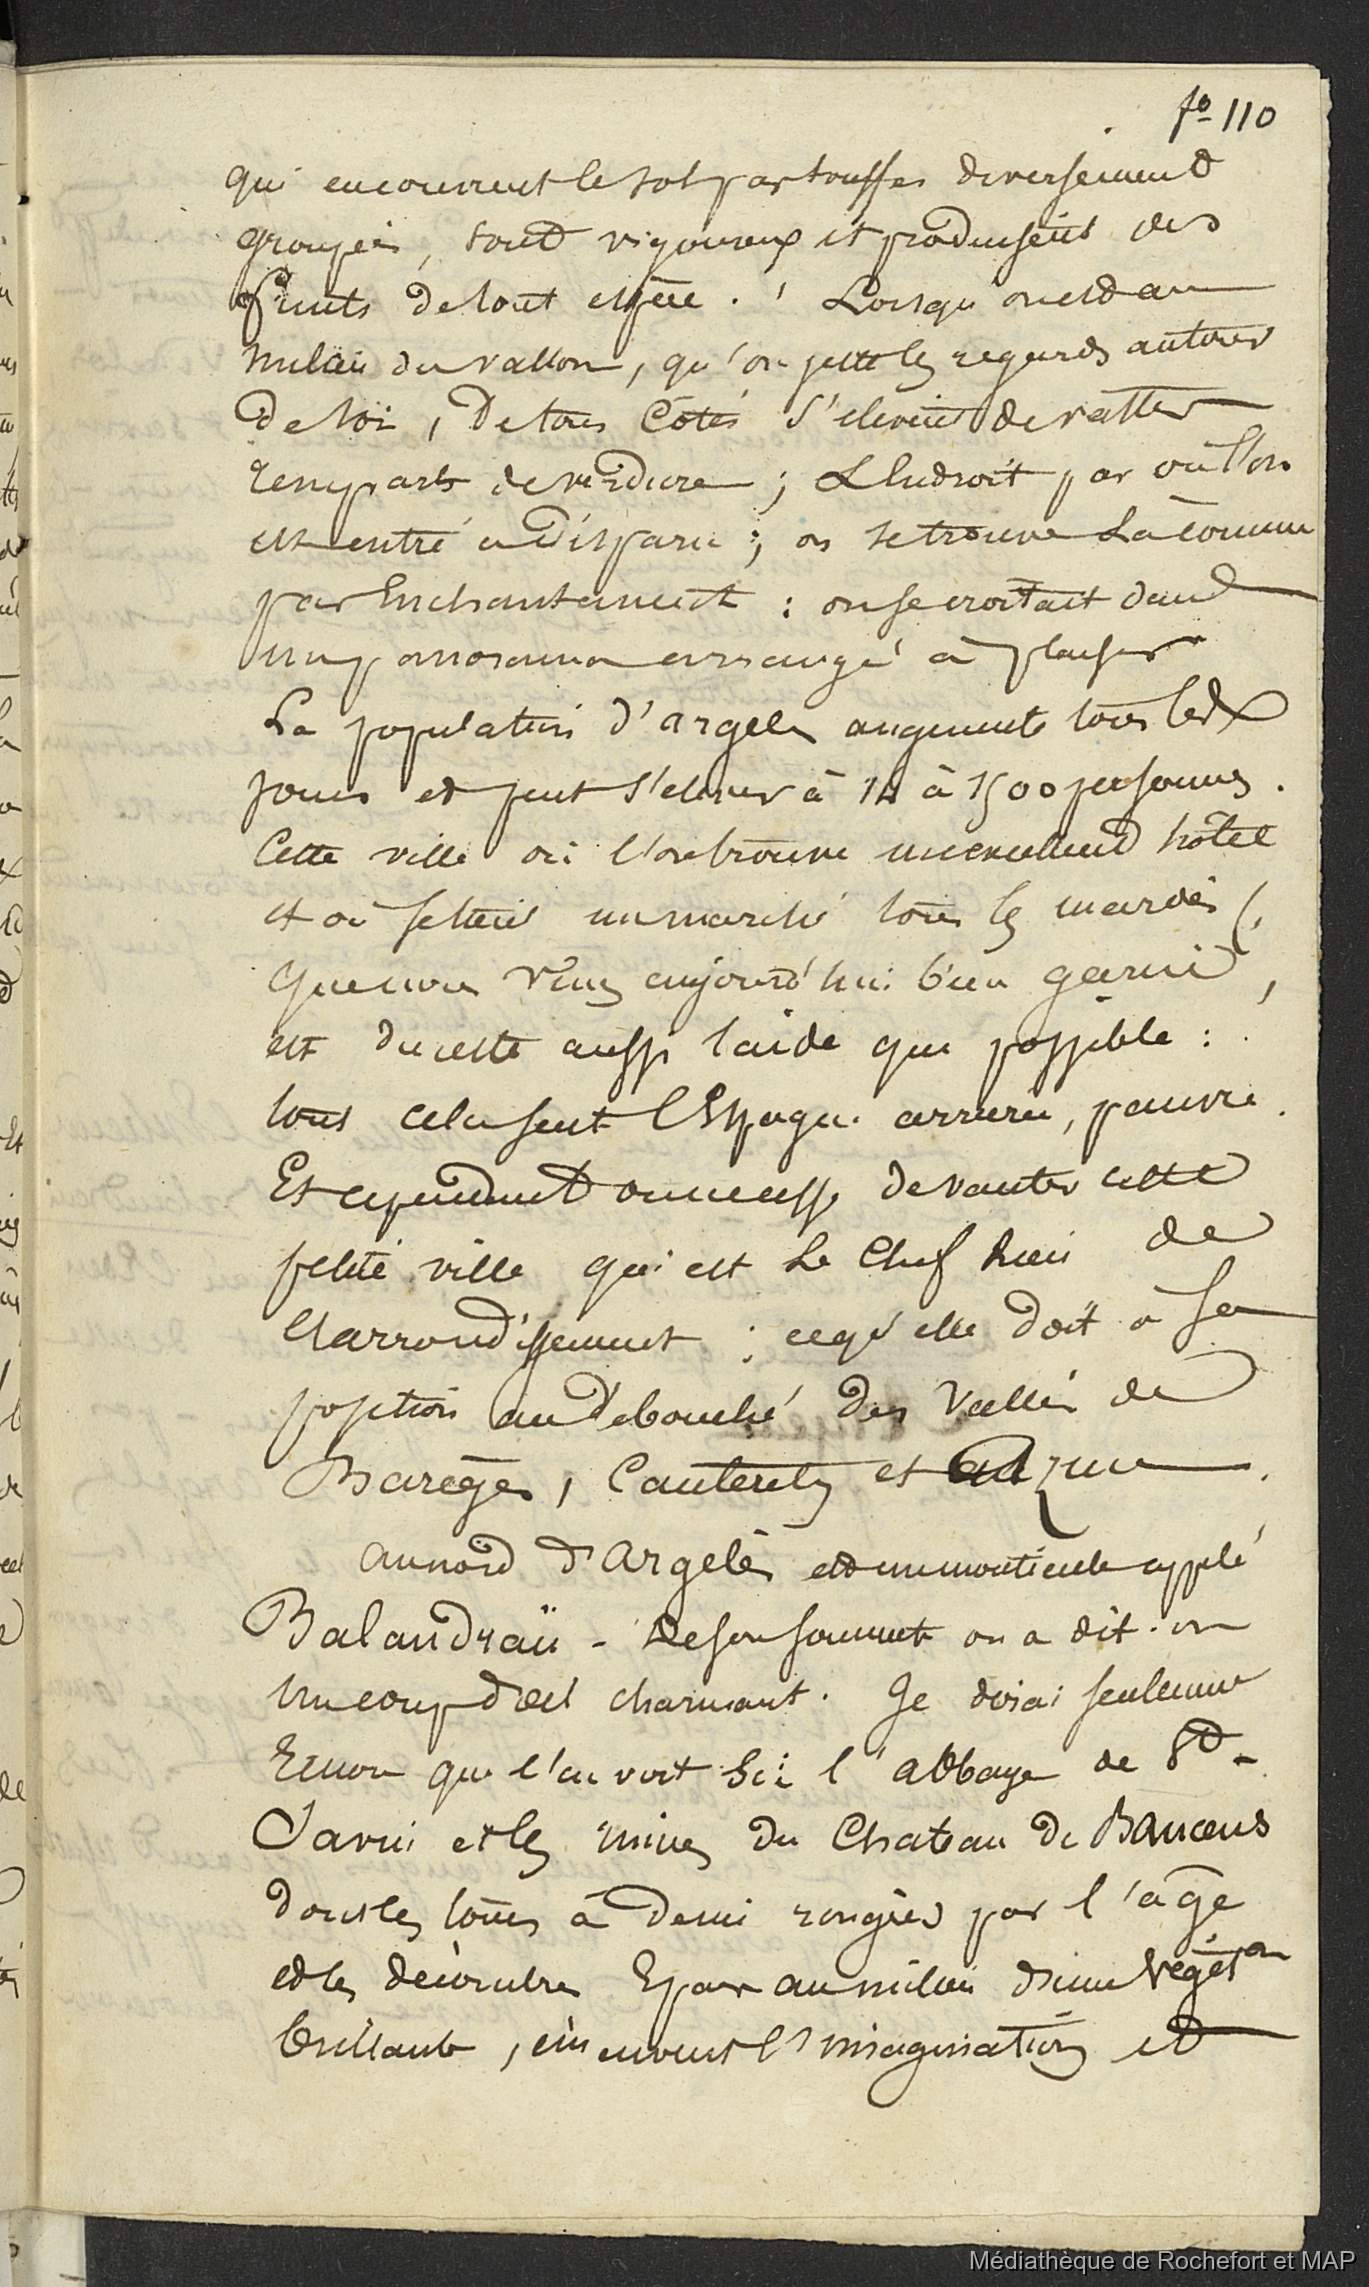 fo 110
qui encouvrent le sol par touffes diversement
groupées, sont vigoureux et produisent des
fruits de tout espèce. Lorsqu'on est au
milieu du vallon, qu'on jette les regards autour
de soi, De tous côtés s'élèvent de vastes
remparts de verdure ; L'endroit par où l'on
est entré a disparu ; on se trouve La comme
par Enchantement : on se croirait dans
un panorama arrangé à plaisir
La population d'argelès augmente tous les
jours et peut s'élever à 14 à 1500 personnes.
Cette ville où l'on trouve un excellent hôtel
et où se tient un marché tous les mardis (,
que nous vîmes aujourd'hui bien garni ,
est du reste aussi laide que possible :
tout cela sent l'Espagne arriérée, pauvre.
Et cependant on ne cesse de vanter cette
petite ville qui est Le Chef lieu de
l'arrondissement ; ce qu'elle doit à sa
position au débouché des Vallées de
Barèges, Cauterets et azun.
au nord d'Argelès est un monticule appelé
Balandraü - De son sommet on a dit-on
un coup d'œil charmant. Je dirai seulement
encore que l'on voit ici l'abbaye de St-
Savin et les ruines du Chateau de Baucens
dont les tours à demi rongées par l'âge
et les décombres Epars au milieu d'une végéton
brillante, émeuvent l'imagination et
Médiathèque de Rochefort et MAP